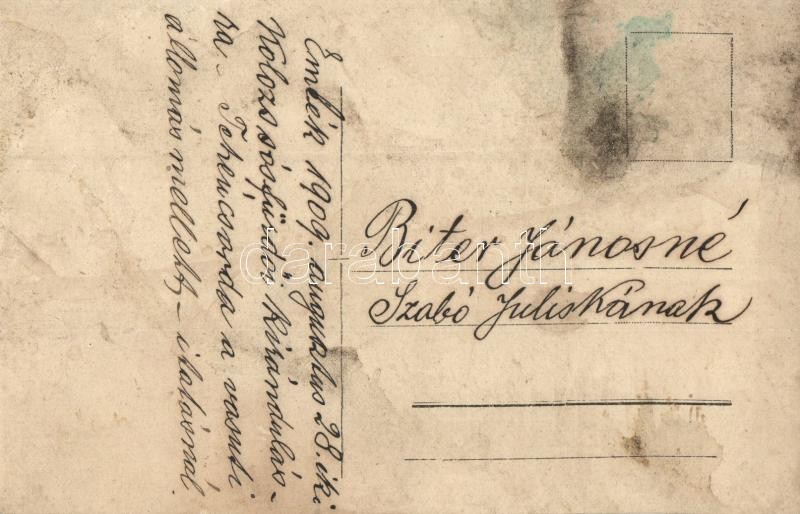 Emlék 1909. augusztus 28. iki
Kolozs sósfürdői kirándulás-
ra. Tehéncsorda a vasuti
állomás mellett, – itatásnál.
Biter Jánosné
Szabó Juliskának
darabanth